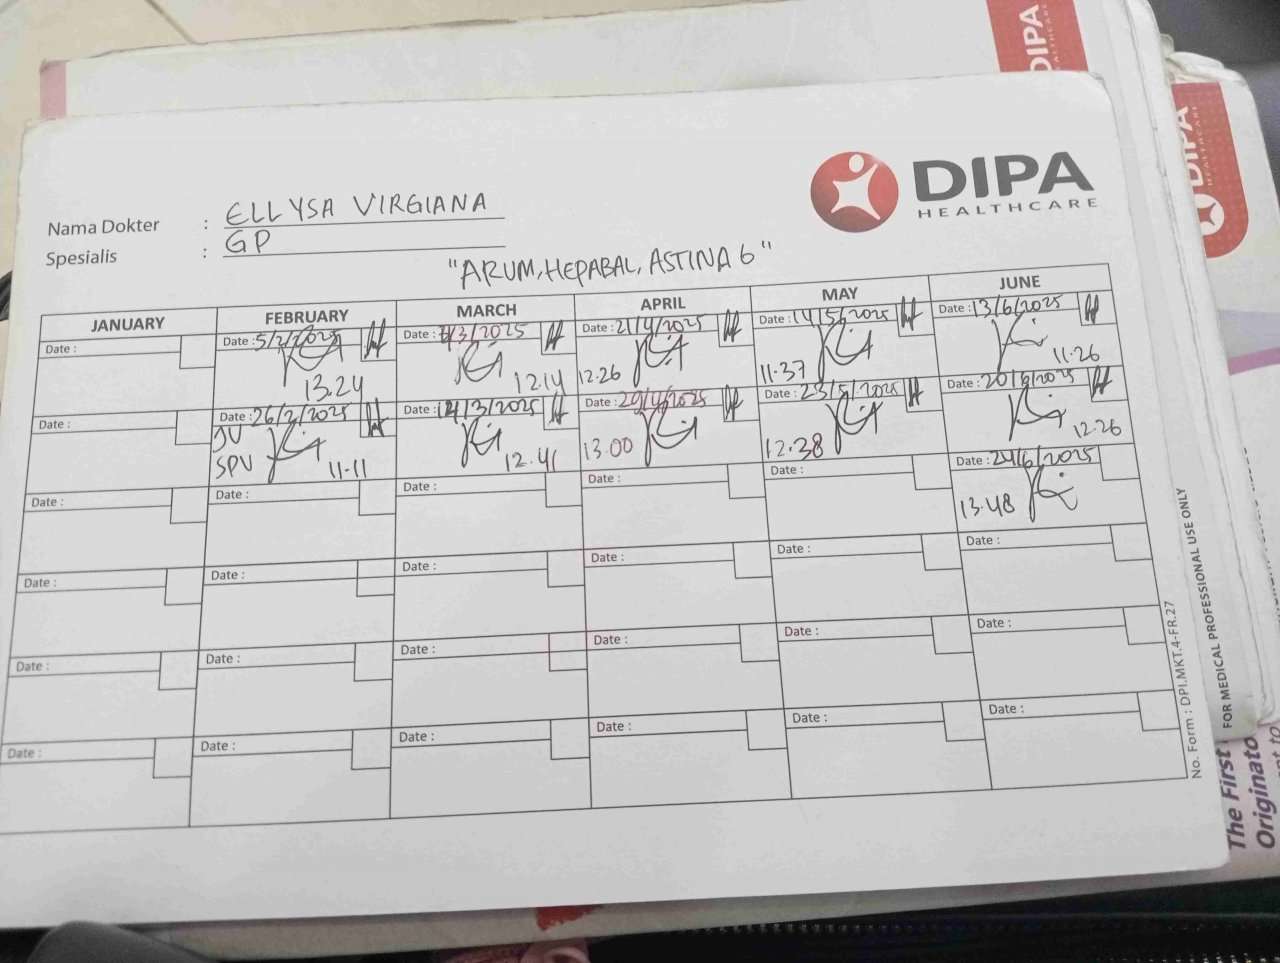 DIPA
HEALTHCARE
DIPA
HEALTHCARE
DIPA
HEALTHCARE
Nama Dokter : ELLYSA VIRGIANA
Spesialis : GP
"ARUM, HEPABAL, ASTINA 6"
JANUARY FEBRUARY MARCH APRIL MAY JUNE
Date : Date : 5/2/2025 Date : /3/2025 Date : 21/4/2025 Date : 14/5/2025 Date : 13/6/2025
13.24 12.14 12.26 11.37 11.26
Date : Date : 26/2/2025 Date : 14/3/2025 Date : 29/4/2025 Date : 23/5/2025 Date : 20/6/2025
JV
SPV 11.11 12.41 13.00 12.38 12.26
Date : Date : Date : Date : Date : Date : 24/6/2025
13.48
Date : Date : Date : Date : Date : Date :
Date : Date : Date : Date : Date : Date :
Date : Date : Date : Date : Date : Date :
No. Form : DPI.MKT.4-FR.27
FOR MEDICAL PROFESSIONAL USE ONLY
The First
Originato